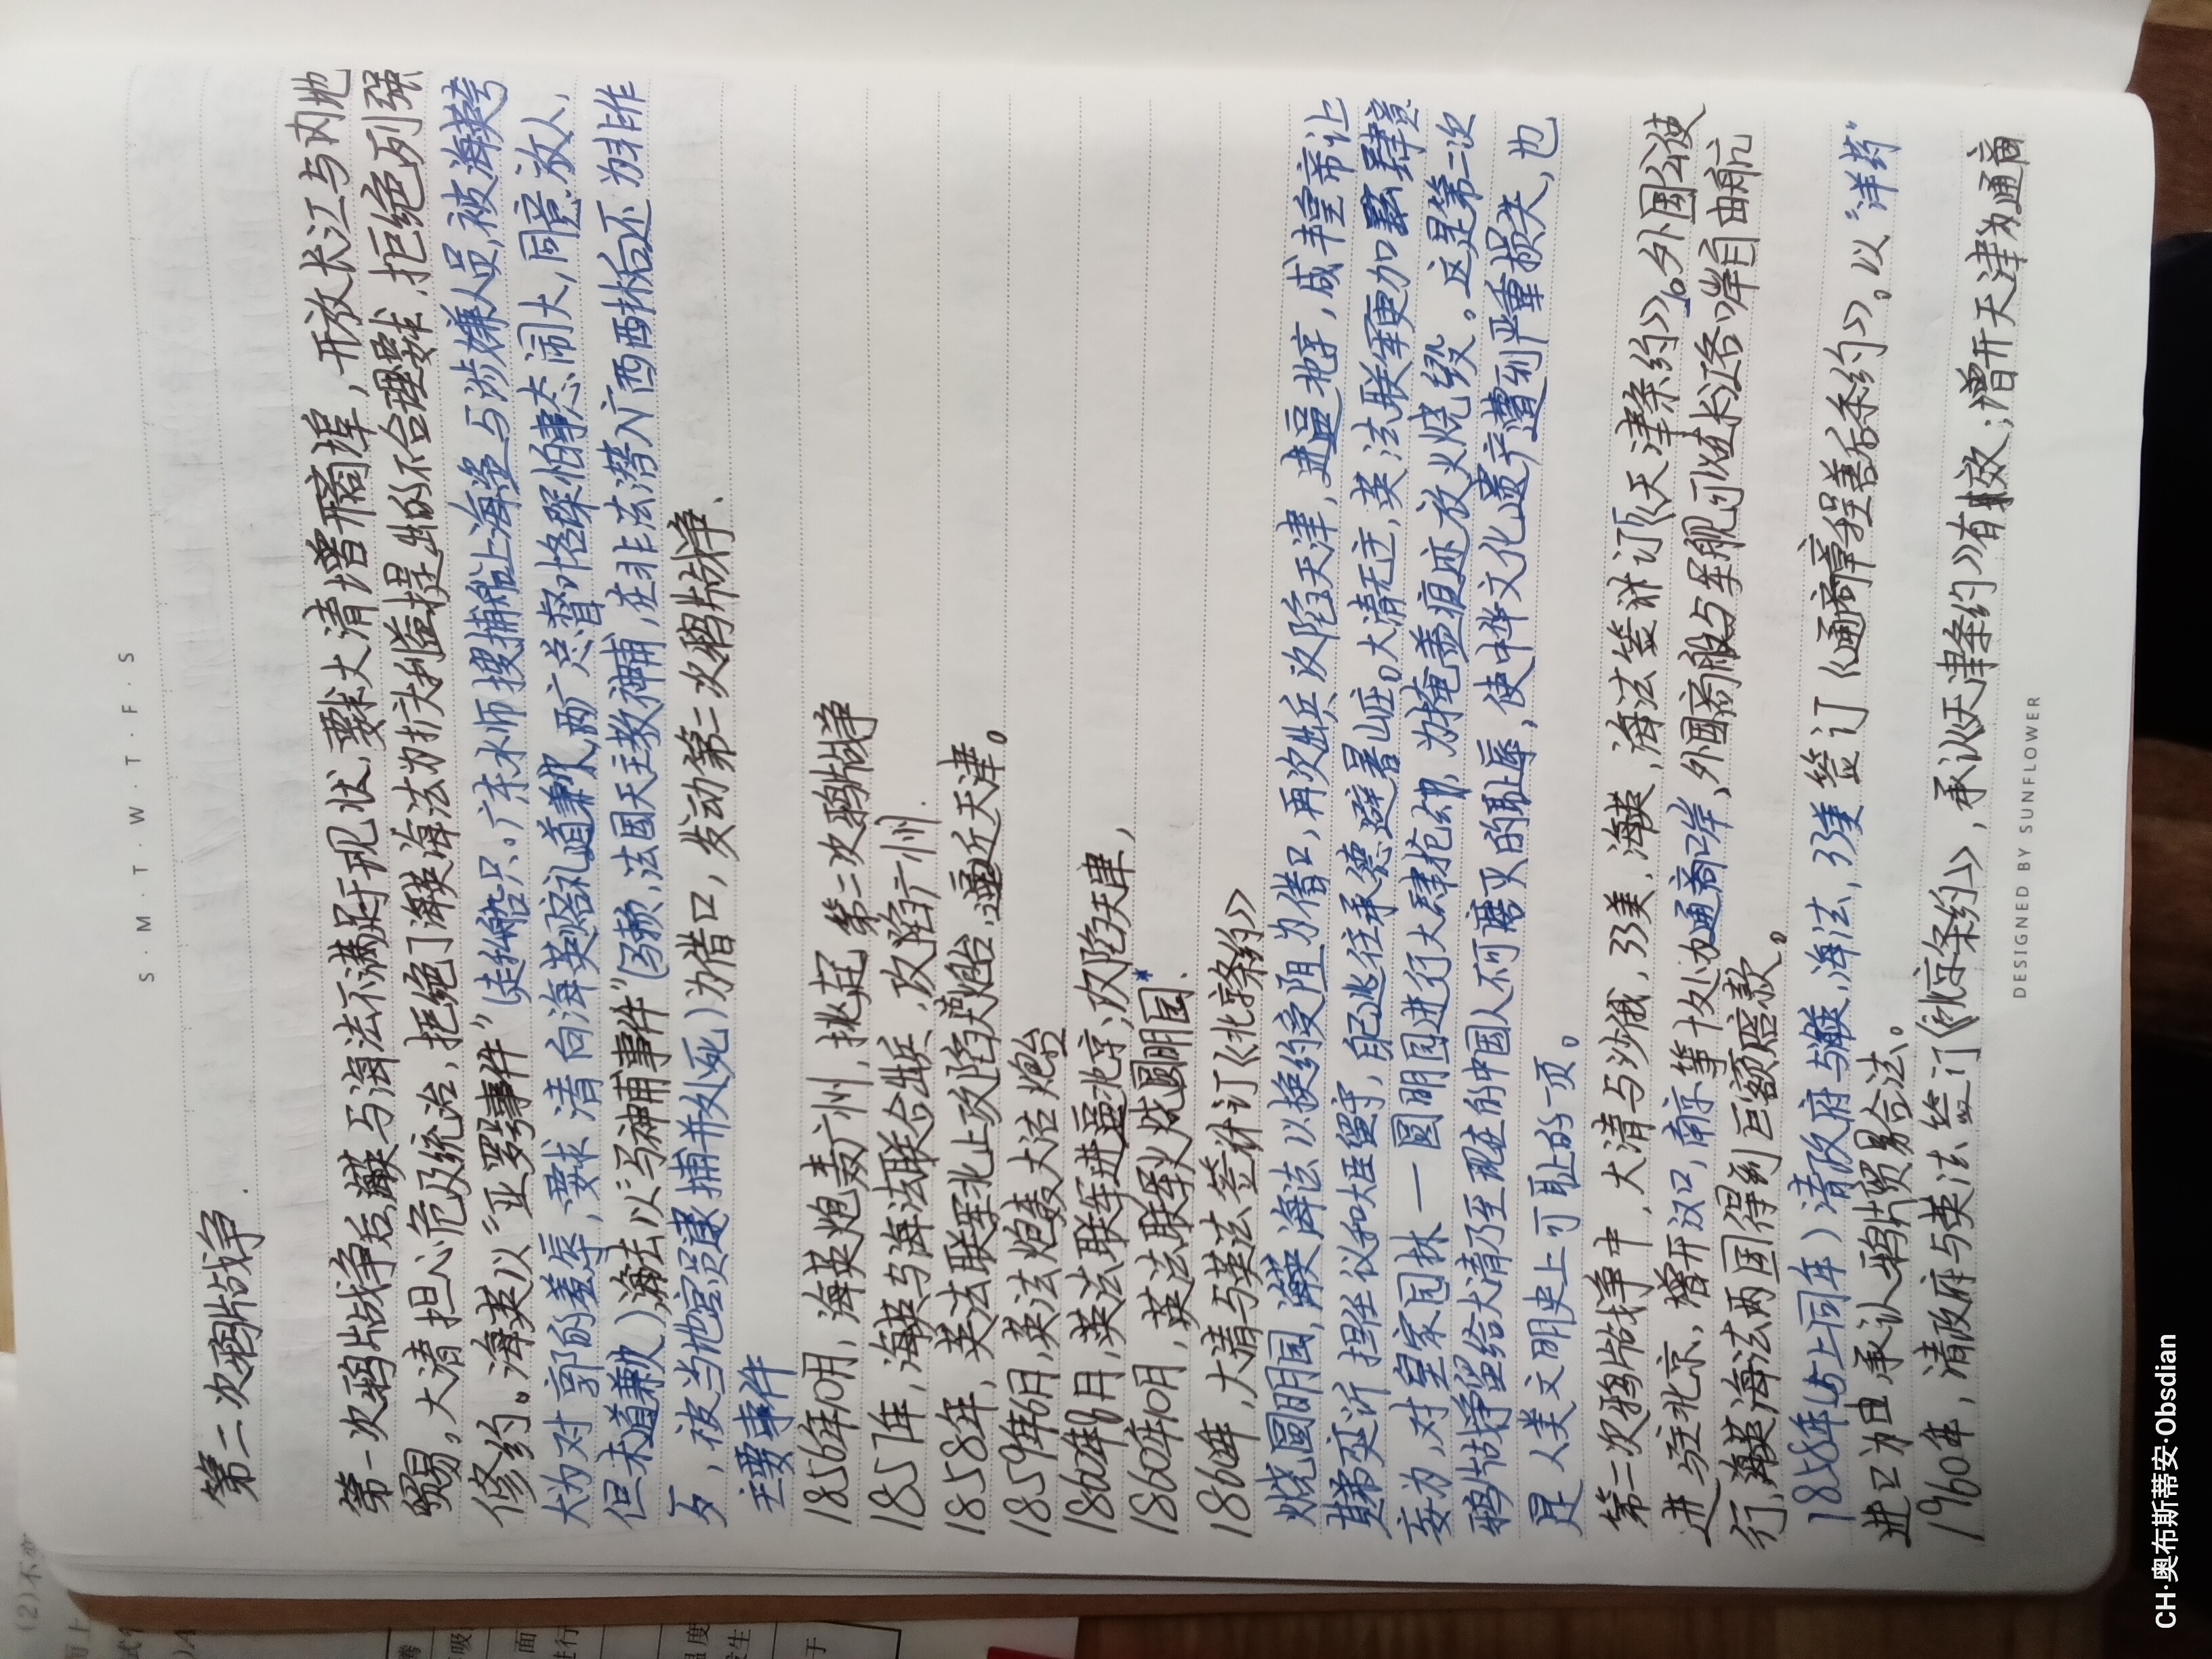 S · M · T · W · T · F · S
第二次鸦片战争.
第一次鸦片战争后,海英与海法不满足于现状,要求大清增开商埠,开放长江与内地
贸易。大清担心危及统治,拒绝了海英海法为扩大利益提出的不合理要求,拒绝列强
修约。海英以“亚罗号事件”(走私船只。广东水师搜捕船上海盗与涉嫌人员,被海英夸
大为对 的羞辱,要求清向海英赔礼道歉,两广总督叶名琛怕事态闹大,同意放人,
但未道歉),海法以“马神甫事件”(马赖,法国天主教神甫,在非法潜入广西西林后还为非作
歹,被当地官员逮捕并处死)为借口,发动第二次鸦片战争.
主要事件
1856年10月,海英炮轰广州,挑起第二次鸦片战争
1857年,海英与海法联合出兵,攻陷广州.
1858年,英法联军北上攻陷大沽炮台,逼近天津。
1859年6月,英法炮轰大沽炮台
1860年8月,英法联军进逼北京,攻陷天津,
1860年10月,英法联军火烧圆明园*.
1860年,大清与英法签订《北京条约》
火烧圆明园,海英海法以换约受阻为借口,再次出兵攻陷天津,进逼北京,咸丰皇帝让
其弟奕訢担任议和大臣留守,自己逃往承德避暑山庄。大清无主,英法联军更加肆意
妄为,对皇家园林—圆明园进行大肆抢劫,为掩盖痕迹放火烧毁。这是第二次
鸦片战争留给大清乃至现在的中国人不可磨灭的耻辱,使中华文化遗产遭到严重损失,也
是人类文明史上可耻的一页。
第二次鸦片战争中,大清与沙俄,33美,海英,海法签订《天津条约》。外国公使
进驻北京,增开汉口,南京等十处为通商口岸,外国商船与军舰可以在长江各口岸自由航
行,海英海法两国得到巨额赔款。
1858年(与上同年)清政府与海英,海法,33美签订《通商章程善后条约》。以“洋药”
进口为由承认鸦片贸易合法。
1960年,清政府与英法签订《北京条约》,承认《天津条约》有效;增开天津为通商
DESIGNED BY SUNFLOWER
CH·奥布斯蒂安·Obsdian